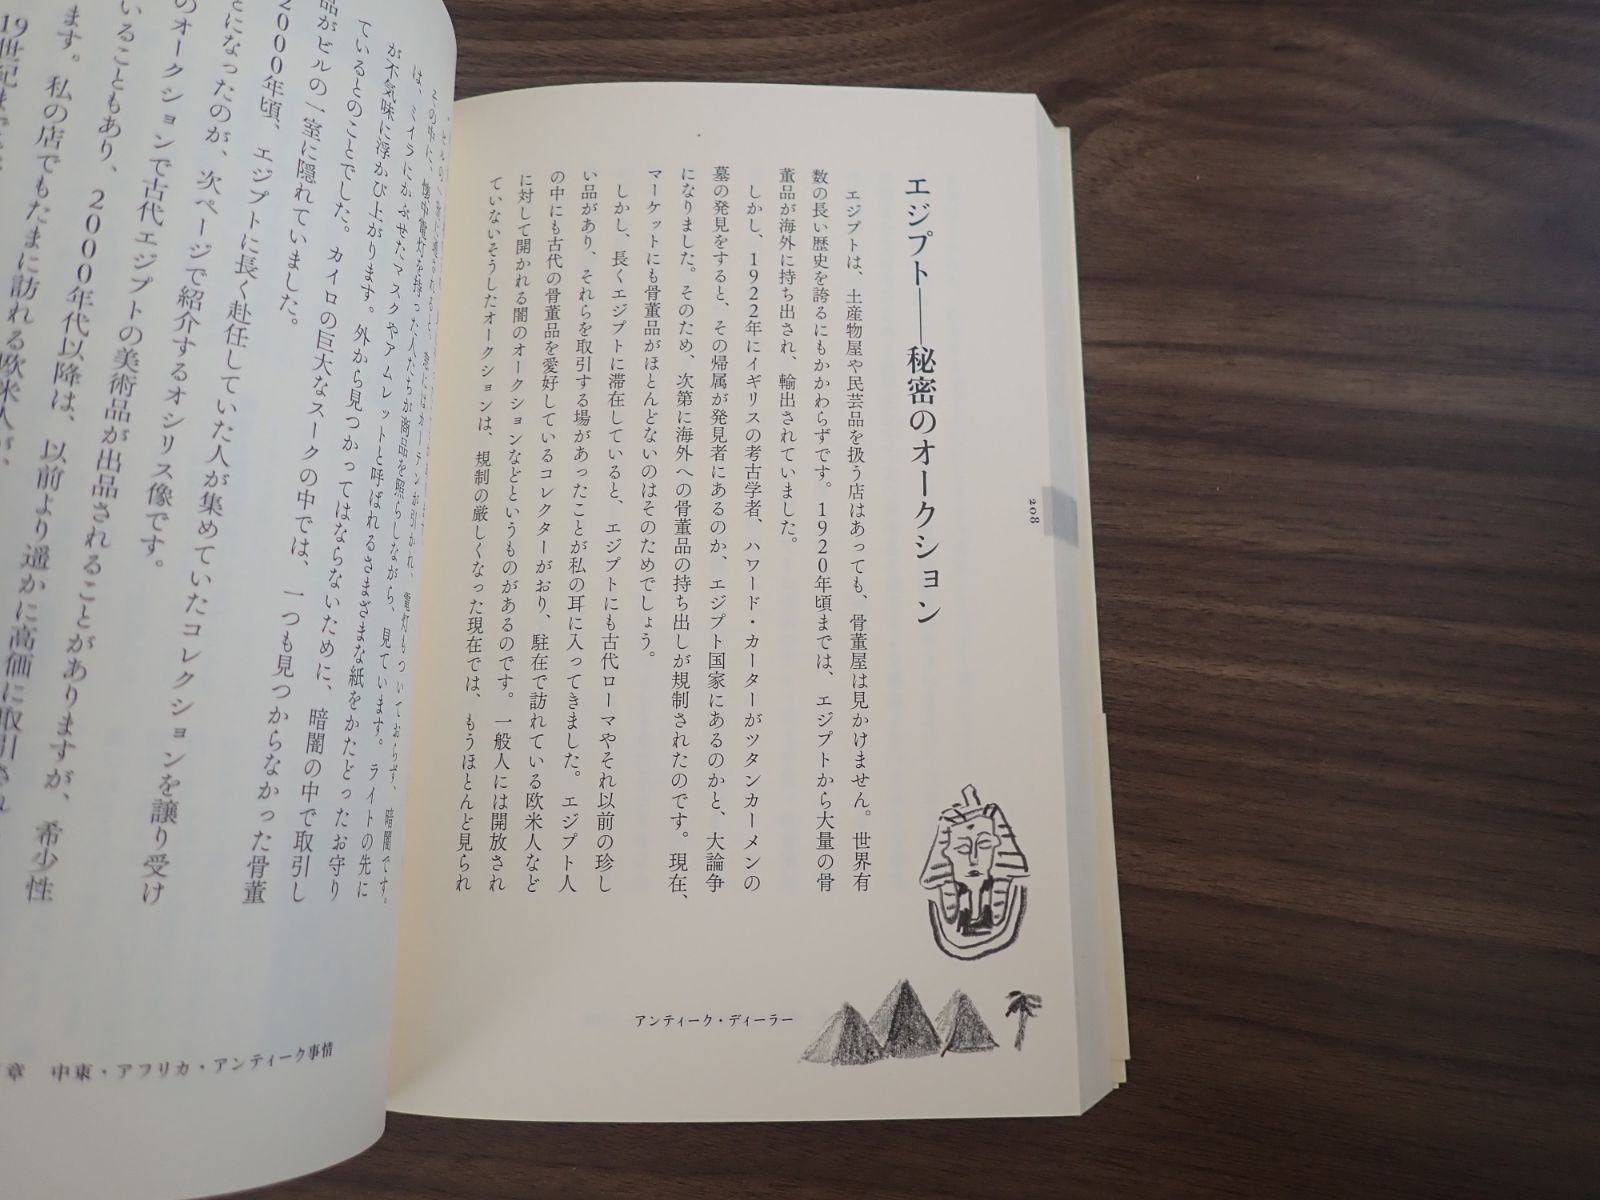 エジプト――秘密のオークション
エジプトは、土産物屋や民芸品を扱う店はあっても、骨董屋は見かけません。世界有
数の長い歴史を誇るにもかかわらずです。1920年頃までは、エジプトから大量の骨
董品が海外に持ち出され、輸出されていました。
しかし、1922年にイギリスの考古学者、ハワード・カーターがツタンカーメンの
墓の発見をすると、その帰属が発見者にあるのか、エジプト国家にあるのかと、大論争
になりました。そのため、次第に海外への骨董品の持ち出しが規制されたのです。現在、
マーケットにも骨董品がほとんどないのはそのためでしょう。
しかし、長くエジプトに滞在していると、エジプトにも古代ローマやそれ以前の珍し
い品があり、それらを取引する場があったことが私の耳に入ってきました。エジプト人
の中にも古代の骨董品を愛好しているコレクターがおり、駐在で訪れている欧米人など
に対して開かれる闇のオークションなどというものがあるのです。一般人には開放され
ていないそうしたオークションは、規制の厳しくなった現在では、もうほとんど見られ
208
アンティーク・ディーラー
その中に、懐中電灯を持った人たちが商品を照らしながら、見ています。ライトの先に
は、ミイラにかぶせたマスクやアムレットと呼ばれるさまざまな紙をかたどったお守り
が不気味に浮かび上がります。外から見つかってはならないために、暗闇の中で取引し
ているとのことでした。カイロの巨大なスークの中では、一つも見つからなかった骨董
品がビルの一室に隠れていました。
2000年頃、エジプトに長く赴任していた人が集めていたコレクションを譲り受け
とになったのが、次ページで紹介するオシリス像です。
のオークションで古代エジプトの美術品が出品されることがありますが、希少性
いることもあり、2000年代以降は、以前より遥かに高価に取引され
ます。私の店でもたまに訪れる欧米人が、
章 中東・アフリカ・アンティーク事情